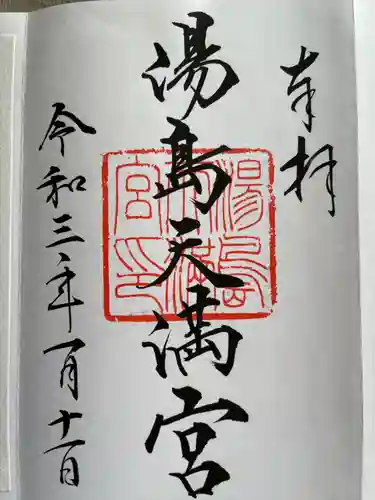 奉拝
湯島天満宮
湯島天満宮印
令和三年一月十一日